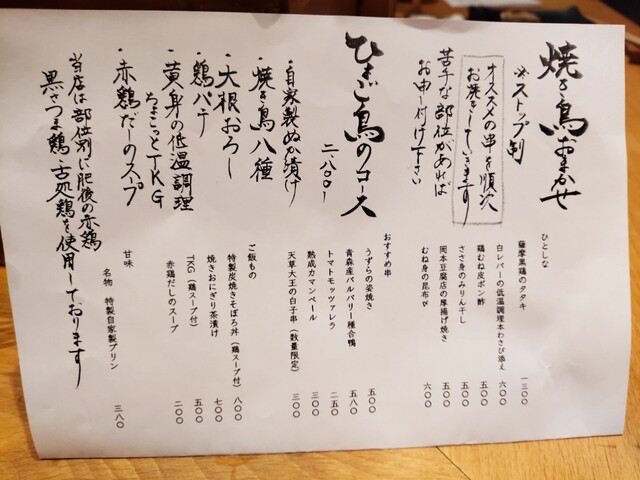 焼き鳥おまかせ
※ストップ制
オススメの串を順次
お焼きしていきます
苦手な部位があれば
お申し付け下さい
ひまご鳥のコース
二、八〇〇-
・自家製ぬか漬け
・焼き鳥八種
・大根おろし
・鶏パテ
・黄身の低温調理
ちょこっとTKG
・赤鶏だしのスープ
当店は部位別に肥後の赤鶏
黒さつま鶏・古処鶏を使用しております
ひとしな
薩摩黒鶏のタタキ 一三〇〇
白レバーの低温調理本わさび添え 六〇〇
鶏むね皮ポン酢 五〇〇
ささ身のみりん干し 五〇〇
岡本豆腐店の厚揚げ焼き 五〇〇
むね身の昆布〆 六〇〇
おすすめ串
うずらの姿焼き 五〇〇
青森産バルバリー種合鴨 五八〇
トマトモッツァレラ 二五〇
熟成カマンベール 三〇〇
天草大王の白子串(数量限定) 三〇〇
ご飯もの
特製炭焼きそぼろ丼(鶏スープ付) 八〇〇
焼きおにぎり茶漬け 七〇〇
TKG(鶏スープ付) 五〇〇
赤鶏だしのスープ 二〇〇
甘味
名物 特製自家製プリン 三八〇